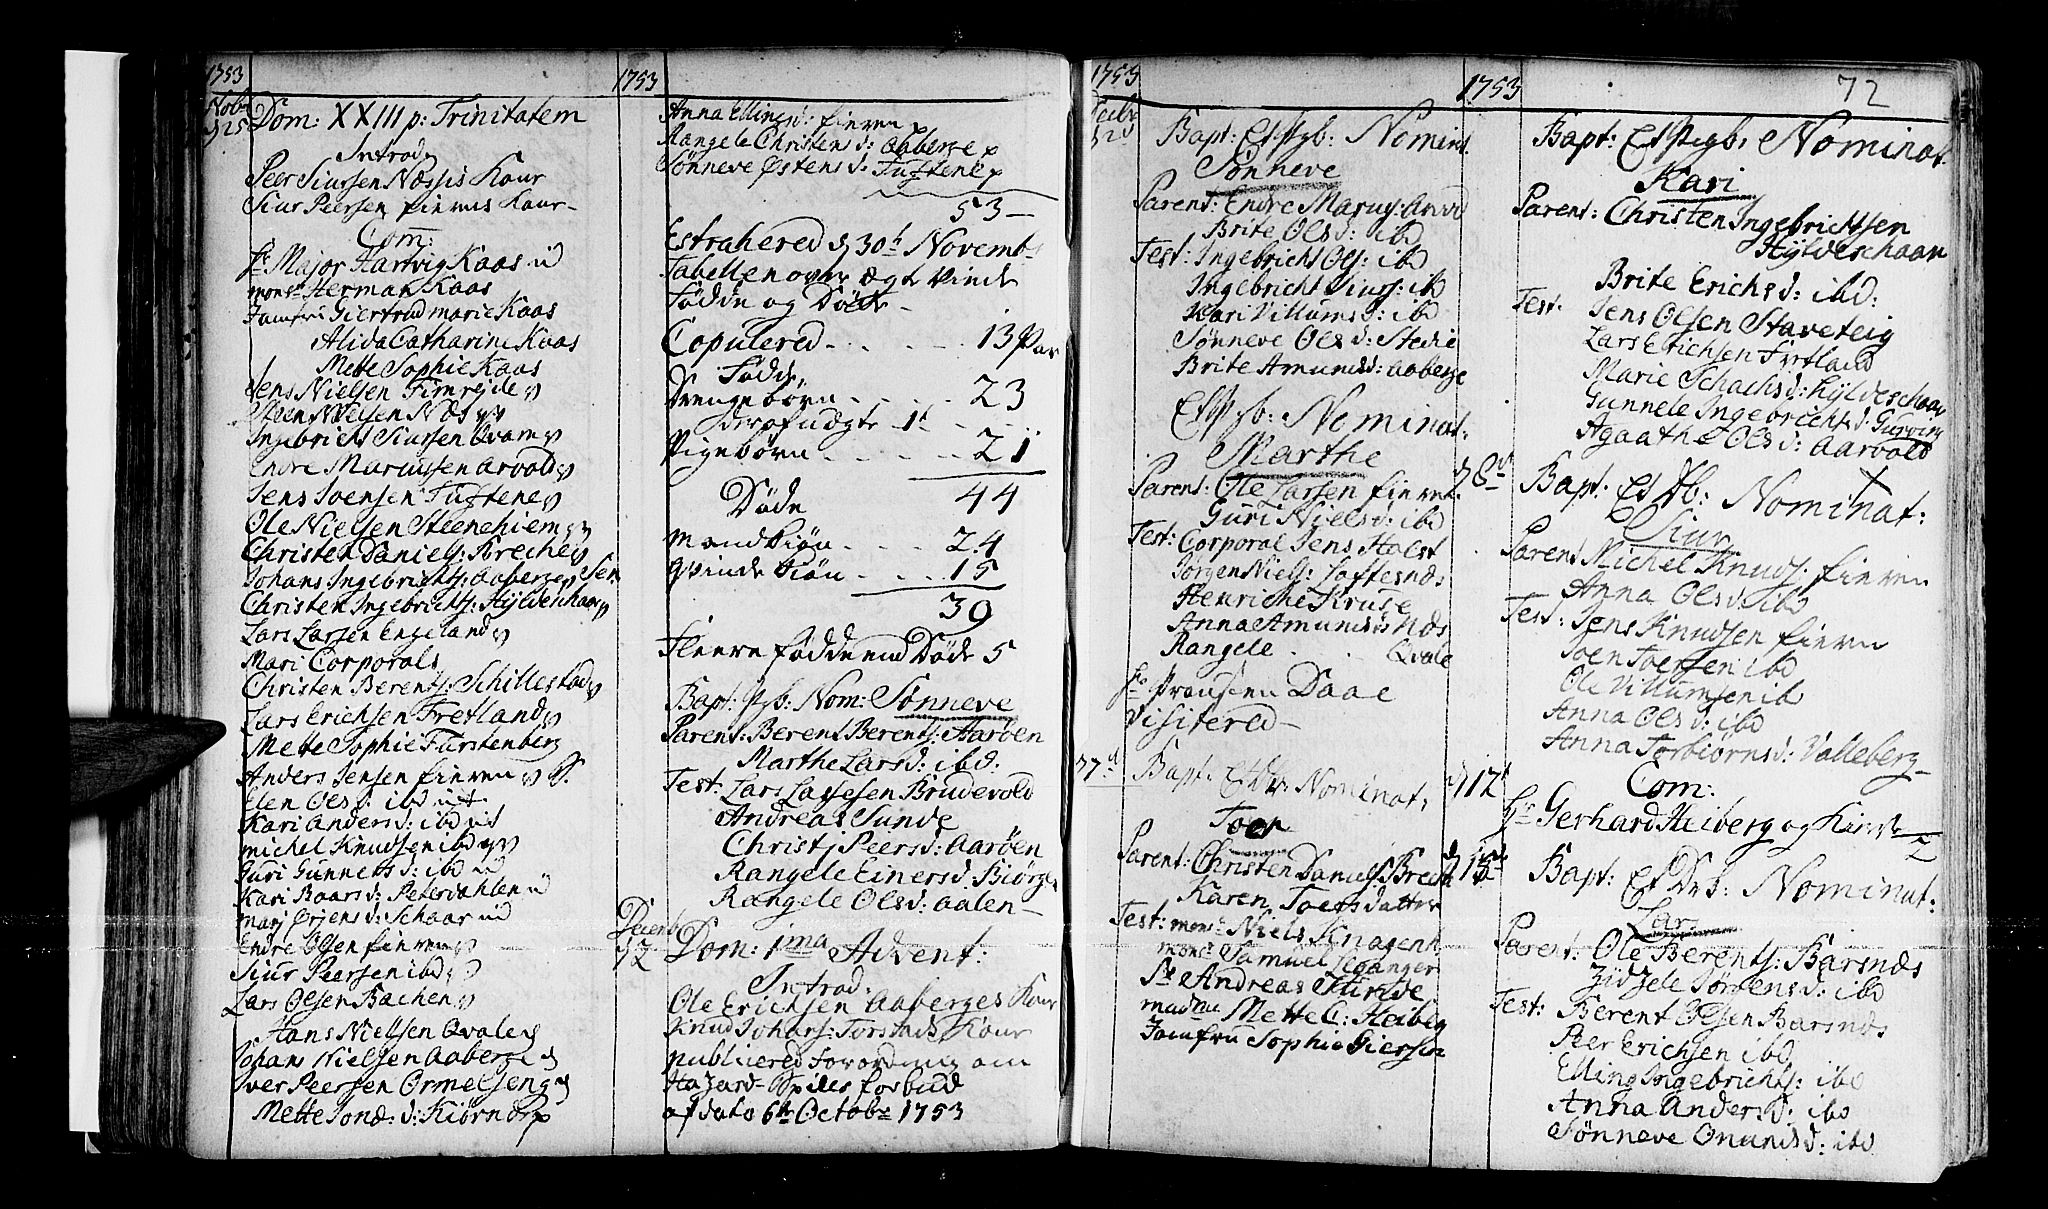 1753
Nobr
d 25
Dom: XXIII p: Trinitatem
Introd:
Peer Siursen Næssis Konr
Siur Peersen fierens Konr
Com:
Hr Major Hartvig Kaas ud
mons: Herman Kaas
Jomfru Giertrud marie Kaas
Alida Catharine Kaas
Mette Sophie Kaas
Jens Nielsen Fimreide
Steen Nielsen Næs
Ingebricht Siursen Qvam
Endre Marcussen Arvold
Jens Joensen Tuftene
Ole Nielsen Steenehiem
Christen Daniels: Breche
Johans Ingebrichts: Aaberge Sen
Christen Ingebrichts: Hyldenhaar
Lars Larsen Engeland
Mari Corporals
Christen Berents: Schillestad
Lars Erichsen Fretland
Mette Sophie Fürstenberg
Anders Jensen fieren
Elen Ols d: ibd
Kari Anders d: ibd
michel Knudsen ibd
Guri Gunners d: ibd
Kari Baars d: Petersdahlen
Mari Ørjens d: Schaar
Endre Olsen fieren
Siur Peersen ibd
Lars Olsen Bachen
Hans Nielsen Qvale
Johans Nielsen Aaberge
Iver Peersen Ormelseng
Mette Jonæ d: Kiørnes
1753
Anna Ellings d: fieren
Rangele Christens d: Aaberge
Sønneve Østens d: Tuftene
53
Extrahered d 30te Novembr
Tabellen over Ægte Viede
Fødde og Døde
Copulered 13 Par
Fødde
Drengebørn 23
deraf uægte 1
Pigebørn 21
44
Døde
Mandkiøn 24
Qvindekiøn 15
39
Fleere fødde end Døde 5
Bapt: Pgb: Nom: Sønneve
Parent: Berent Berents: Aarøen
Marthe Lars d: ibd.
Test: Lars Lassesen Brudevold
Andreas Sunde
Christj Peers d: Aarøen
Rangele Einers d. Biørge
Rangele Ols d: Aalen
Decembr
d 2
Dom: 1ma Advent:
Introd:
Ole Erichsen Aaberges Konr
Knud Johans: Torstads Konr
publicered Forordning om
Hazard-Spilles forbud
af dato 6te Octobr 1753
1753
Decbr
d 2d
Bapt: Et Pgb: Nominat.
Sønneve
Parent: Endre Marcus: Arvol
Brite Ols d: ibd
Test: Ingebricht Ols: ibd
Ingebricht Siurs: ib
Kari Villums d: ibd
Sønneve Ols d: Stedie
Brite Amunds d: Aaberge
Et Pgb: Nominat:
Marthe
Parent: Ole Larsen fieren.
Guri Niels d: ibd
Test: Corporal Jens Holst
Jørgen Niels: Loftesnæs
Henriche Kruse
Anna Amunds d: Næs
Rangele Qvale
Hr Provsten Daae
Visitered
d 7d
Bapt. Et Db: Nominat:
Toer
Parent: Christen Daniels: Brech
Karen Toersdatter
Test: mons: Niels Knagenh
mons: Samuel Leganger
Sr Andreas Sunde
madme Mette C: Heiberg
Jomfru Sophie Giersen
1753
72
Bapt: Et Pigb: Nominat.
Kari
Parent: Christen Ingebrichtsen
Hyldeschaar
Brite Erichs d: ibd:
Test. Jens Olsen Staveteig
Lars Erichsen Fretland
Marie Schachs d: Hyldeschaar
Gunnele Ingebrichts d: Gurvin
Agaathe Ols d: Aarvold
d 8d
Bapt: Et Db: Nominat:
Siur
Parent Michel Knuds: fieren
Anna Ols d: ibd
Test: Jens Knudsen fieren
Joen Joensen ibd
Ole Villumsen ib
Anna Ols d: ibd
Anna Torbiørns d: Valleberg
d 12t
Com:
Hr Gerhard Heiberg og Kiæste
2
d 15d
Bapt: Et Drb: Nominat:
Lars
Parent: Ole Berents: Barsnæs
Zidzele Jørgens d: ibd
Test: Berent Olsen Barsnæs
Peer Erichsen ibd
Elling Ingebrichts: ibd
Anna Anders d: ibd
Sønneve Omunds d: ibd